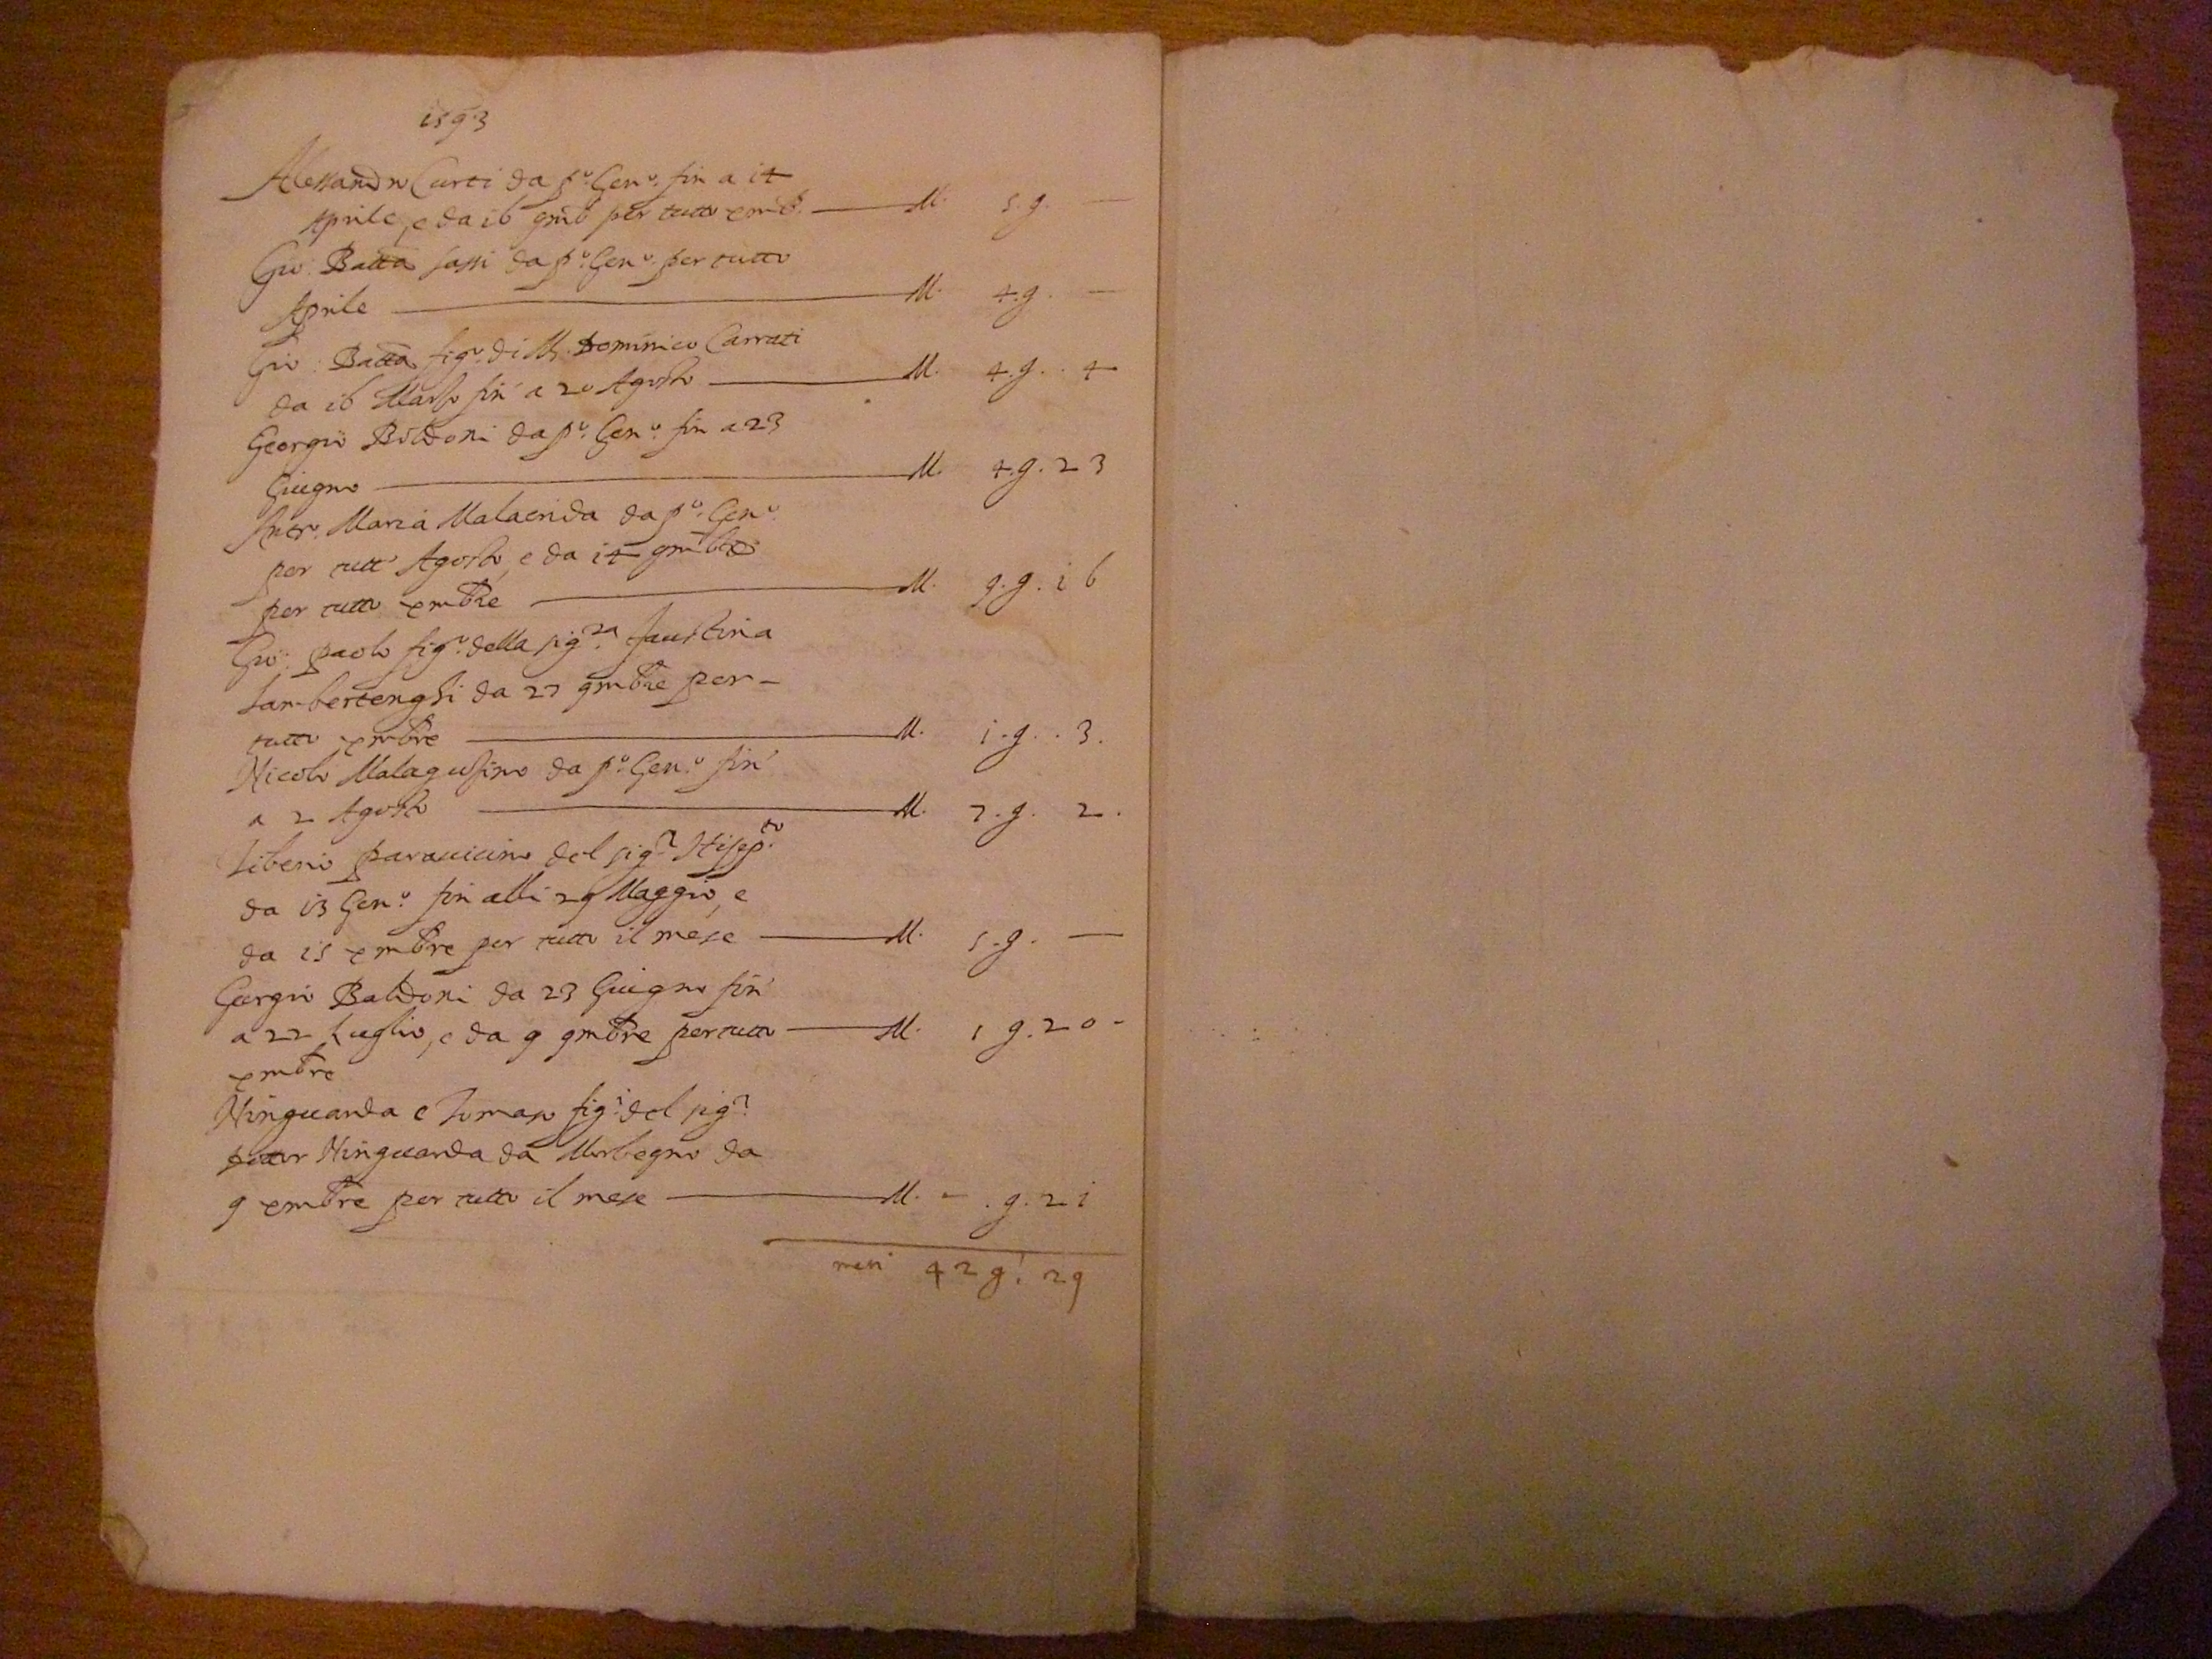 1593
Alessandro Curti da p.º Gen.º fin a 14
Aprile, e da 16 9mb per tutto xmb. — M. 5. g. —
Gio: Batta Sassi da p.º Gen.º per tutto
Aprile — M. 4. g. —
Gio: Batta fig.º di M. Dominico Carrati
da 16 Marso fin a 20 Agosto — M. 4. g. . 4
Georgio Boldoni da p.º Gen.º fin a 23
Giugno — M. 4. g. 23
Maria Malacrida da p.º Gen.º
per tutt' Agosto, e da 14 9mbre
per tutto xmbre — M. 9. g. 16
Gio: paolo fig.º della sig.ra faustina
Lambertenghi da 27 9mbre per-
tutto xmbre — M. 1. g. . 3.
Nicolo Malagusino da p.º Gen.º fin
a 2 Agosto — M. 7. g. 2.
Liberio parauicino del sig.r
da 13 Gen.º fin alli 29 Maggio, e
da 15 xmbre per tutto il mese — M. 5. g. —
Georgio Baldoni da 23 Giugno fin
a 22 Luglio, e da 9 9mbre per tutto — M. g. 20 -
xmbre
Ninguarda e Tomaso fig.i del sig.r
Ninguarda da Morbegno da
9 xmbre per tutto il mese — M. - . g. 21
mesi 42 g.i 29